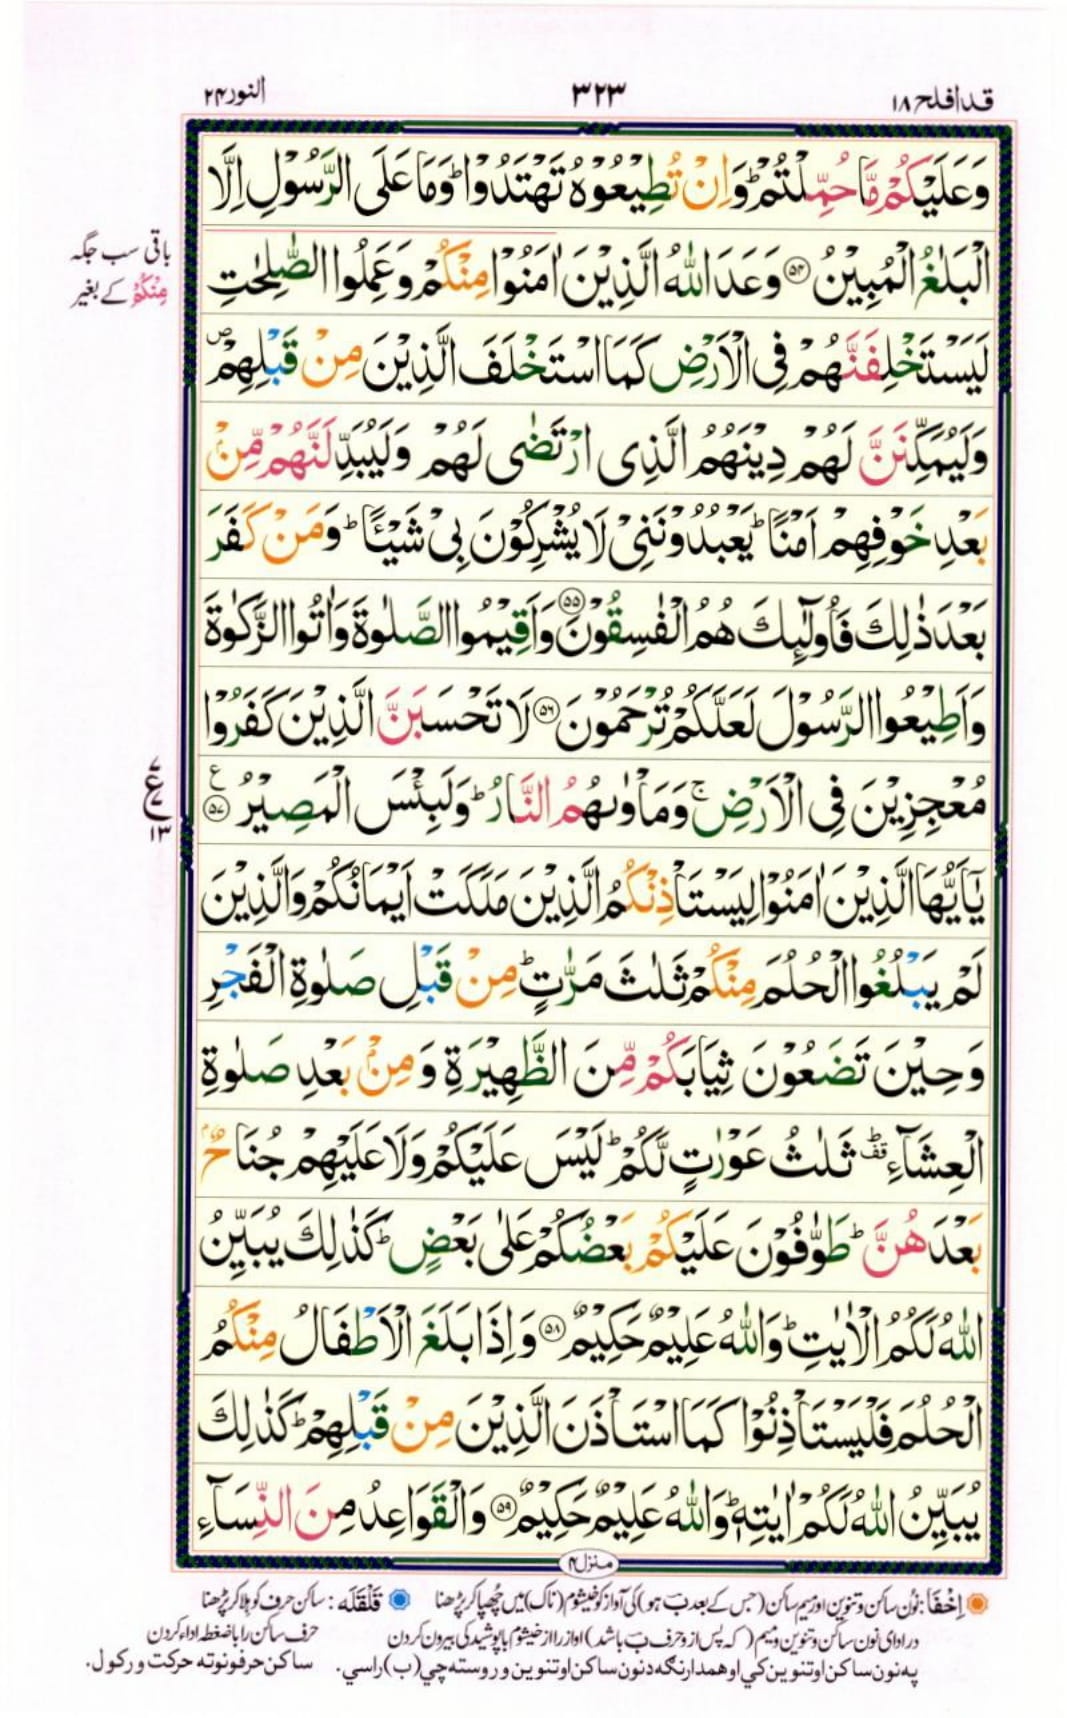 قد افلح ۱۸
۳۲۳
النور ۲۴
وَعَلَيۡكُمۡ مَّا حُمِّلۡتُمۡ‌ؕ وَاِنۡ تُطِيۡعُوۡهُ تَهۡتَدُوۡا‌ؕ وَمَا عَلَى الرَّسُوۡلِ اِلَّا
الۡبَلٰغُ الۡمُبِيۡنُ ۝۵۴ وَعَدَ اللّٰهُ الَّذِيۡنَ اٰمَنُوۡا مِنۡكُمۡ وَعَمِلُوا الصّٰلِحٰتِ
لَيَسۡتَخۡلِفَنَّهُمۡ فِى الۡاَرۡضِ كَمَا اسۡتَخۡلَفَ الَّذِيۡنَ مِنۡ قَبۡلِهِمۡ ص
وَلَيُمَكِّنَنَّ لَهُمۡ دِيۡنَهُمُ الَّذِى ارۡتَضٰى لَهُمۡ وَلَيُبَدِّلَنَّهُمۡ مِّنۡۢ
بَعۡدِ خَوۡفِهِمۡ اَمۡنًا‌ ؕ يَعۡبُدُوۡنَنِىۡ لَا يُشۡرِكُوۡنَ بِىۡ شَيۡـًٔــا‌ ؕ وَمَنۡ كَفَرَ
بَعۡدَ ذٰلِكَ فَاُولٰٓٮِٕكَ هُمُ الۡفٰسِقُوۡنَ ۝۵۵ وَاَقِيۡمُوا الصَّلٰوةَ وَاٰتُوا الزَّكٰوةَ
وَاَطِيۡـعُوا الرَّسُوۡلَ لَعَلَّكُمۡ تُرۡحَمُوۡنَ ۝۵۶ لَا تَحۡسَبَنَّ الَّذِيۡنَ كَفَرُوۡا
مُعۡجِزِيۡنَ فِى الۡاَرۡضِ‌ۚ وَمَاۡوٰٮهُمُ النَّارُ‌ؕ وَلَبِئۡسَ الۡمَصِيۡرُ ۝۵۷ ع
يٰۤـاَيُّهَا الَّذِيۡنَ اٰمَنُوۡا لِيَسۡتَاۡذِنۡكُمُ الَّذِيۡنَ مَلَكَتۡ اَيۡمَانُكُمۡ وَالَّذِيۡنَ
لَمۡ يَـبۡلُغُوا الۡحُـلُمَ مِنۡكُمۡ ثَلٰثَ مَرّٰتٍ‌ؕ مِنۡ قَبۡلِ صَلٰوةِ الۡفَجۡرِ
وَحِيۡنَ تَضَعُوۡنَ ثِيَابَكُمۡ مِّنَ الظَّهِيۡرَةِ وَمِنۡۢ بَعۡدِ صَلٰوةِ
الۡعِشَآءِ ؕ قف ثَلٰثُ عَوۡرٰتٍ لَّـكُمۡ‌ؕ لَـيۡسَ عَلَيۡكُمۡ وَ لَا عَلَيۡهِمۡ جُنَاحٌۢ
بَعۡدَهُنَّ‌ ؕ طَوّٰفُوۡنَ عَلَيۡكُمۡ بَعۡضُكُمۡ عَلٰى بَعۡضٍ‌ؕ كَذٰلِكَ يُبَيِّنُ
اللّٰهُ لَـكُمُ الۡاٰيٰتِ‌ؕ وَاللّٰهُ عَلِيۡمٌ حَكِيۡمٌ ۝۵۸ وَاِذَا بَلَغَ الۡاَطۡفَالُ مِنۡكُمُ
الۡحُـلُمَ فَلۡيَسۡتَاۡذِنُوۡا كَمَا اسۡتَاۡذَنَ الَّذِيۡنَ مِنۡ قَبۡلِهِمۡ‌ؕ كَذٰلِكَ
يُبَيِّنُ اللّٰهُ لَـكُمۡ اٰيٰتِهٖ‌ؕ وَاللّٰهُ عَلِيۡمٌ حَكِيۡمٌ ۝۵۹ وَالۡـقَوَاعِدُ مِنَ النِّسَآءِ
باقی سب جگہ
مِنۡكُمۡ کے بغیر
۷
ع
۷
۱۳
منزل ۴
اِخْفَا: نُون ساکن و تنوین اور میم ساکن (جس کے بعد ب ہو) کی آواز کو خیشوم (ناک) میں چُھپا کر پڑھنا
قَلْقَلَه: ساکن حرف کو ہلا کر پڑھنا
در ادای نون ساکن و تنوین و میم (که پس از و حرف ب باشد) آواز را از خیشوم با پوشیدگی بیرون کردن
حرف ساکن را با ضغطه اداء کردن
په نون ساکن او تنوین کي او همدارنګه د نون ساکن او تنوین وروسته چي (ب) راسي.
ساکن حرفونو ته حرکت ورکول.